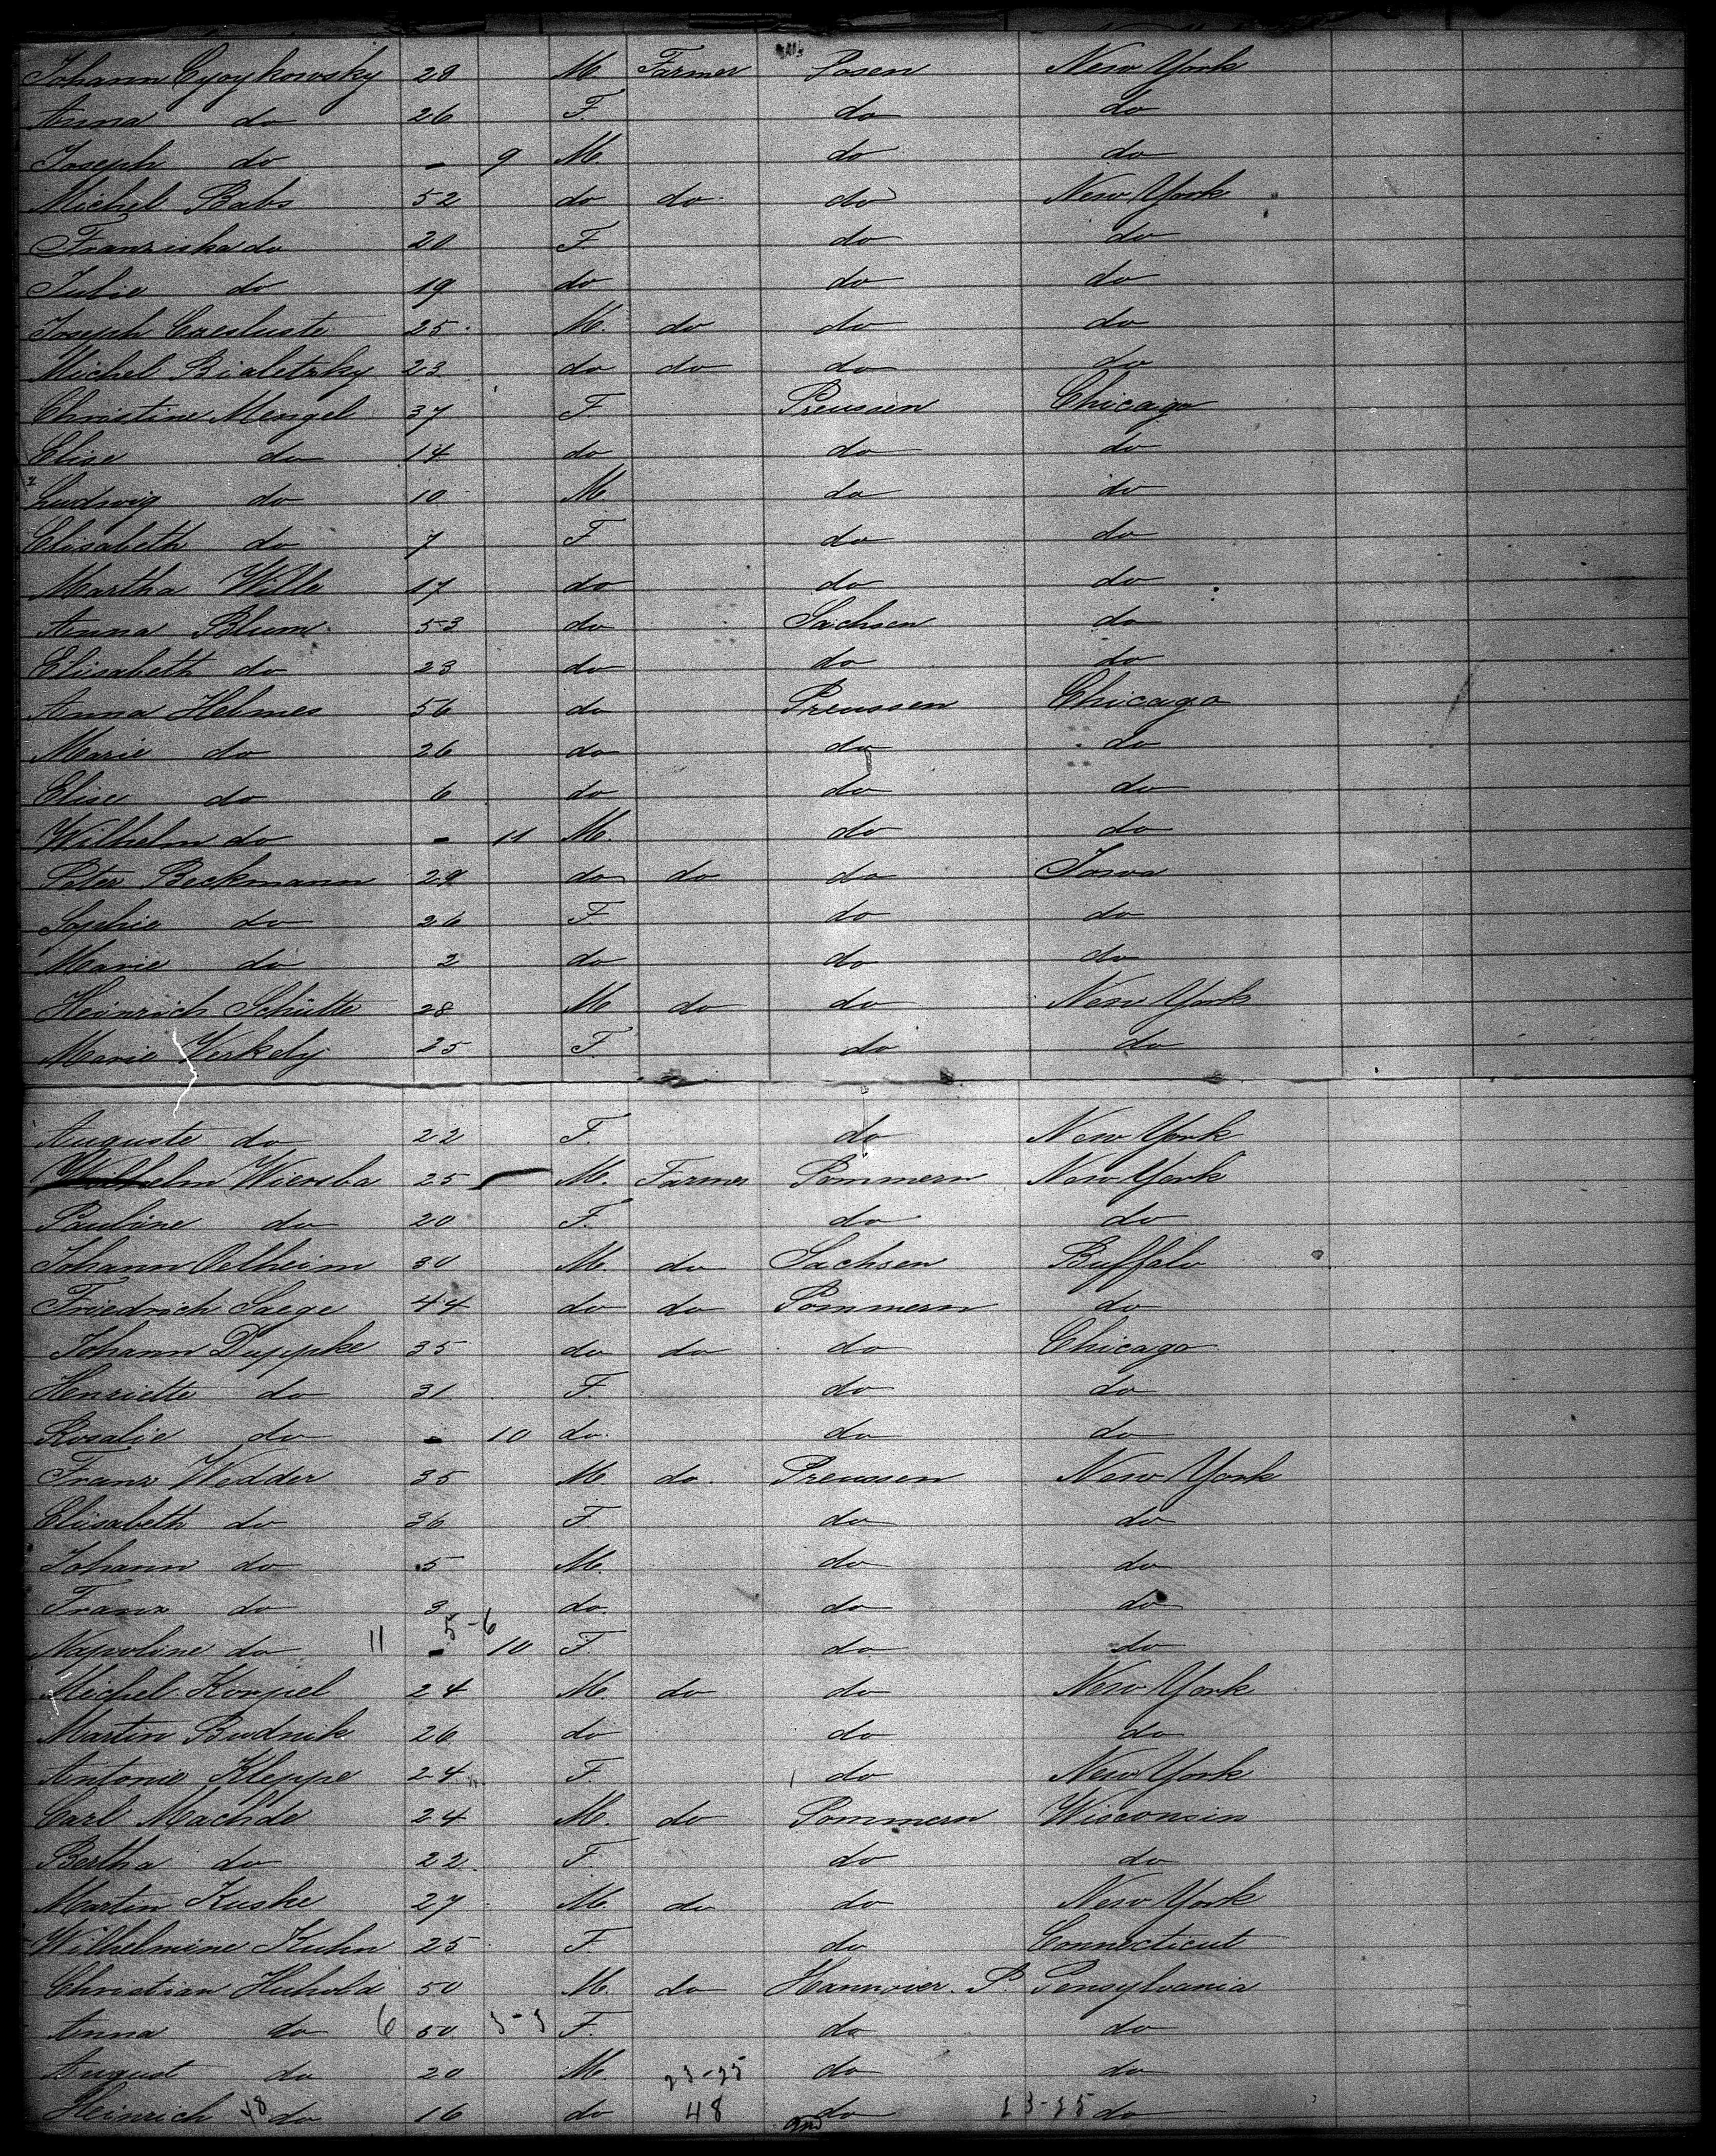 Johann Cyoykowsky 28 M Farmer Posen New York
Anna do 26 F. do do
Joseph do - 9 M. do do
Michel Babs 52 do do do New York
Franziska do 20 F do do
Julie do 19 do do do
Joseph 25 M. do do do
Michel Bialetzky 23 do do do do
Christine Mengel 37 F Preussen Chicago
Elise do 14 do do do
Ludwig do 10 M. do do
Elisabeth do 7 F do do
Martha Wille 17 do do do
Anna Blum 53 do Sachsen do
Elisabeth do 23 do do do
Anna Helmes 56 do Preussen Chicago
Marie do 26 do do do
Elise do 6 do do do
Wilhelm do - 11 M. do do
Peter Beckmann 29 do do do Iowa
Sophie do 26 F. do do
Marie do 2 do do do
Heinrich Schütte 28 M do do New York
Marie Kerkdy 25 F. do do
Auguste do 22 F. do New York
Wilhelm Wiersba 25 M. Farmer Pommern New York
Pauline do 20 F. do do
Johann Oelheim 30 M. do Sachsen Buffalo
Friedrich Saege 44 do do Pommern do
Johann Duppke 35 do do do Chicago
Henriette do 31 F. do do
Rosalie do - 10 do. do do
Franz Wedder 35 M. do. Preussen New York
Elisabeth do 36 F. do do
Johann do 5 M. do do
Franz do 3 do. do do
Napoline do 11 - 5-6 10 F. do do
Michel Korpel 24 M. do do New York
Martin Budnik 26 do do do
Antonie Kleppe 24 F. do New York
Carl Machde 24 M. do Pommern Wisconsin
Bertha do 22. F. do do
Martin Kuske 27 M. do do New York
Wilhelmine Kuhn 25 F. do Connecticut
Christian Huhold 50 M. do Hannover. P. Pensylvania
Anna do 6 50 F. do do
August do 20 M. do do
Heinrich do 16 do 48 do do